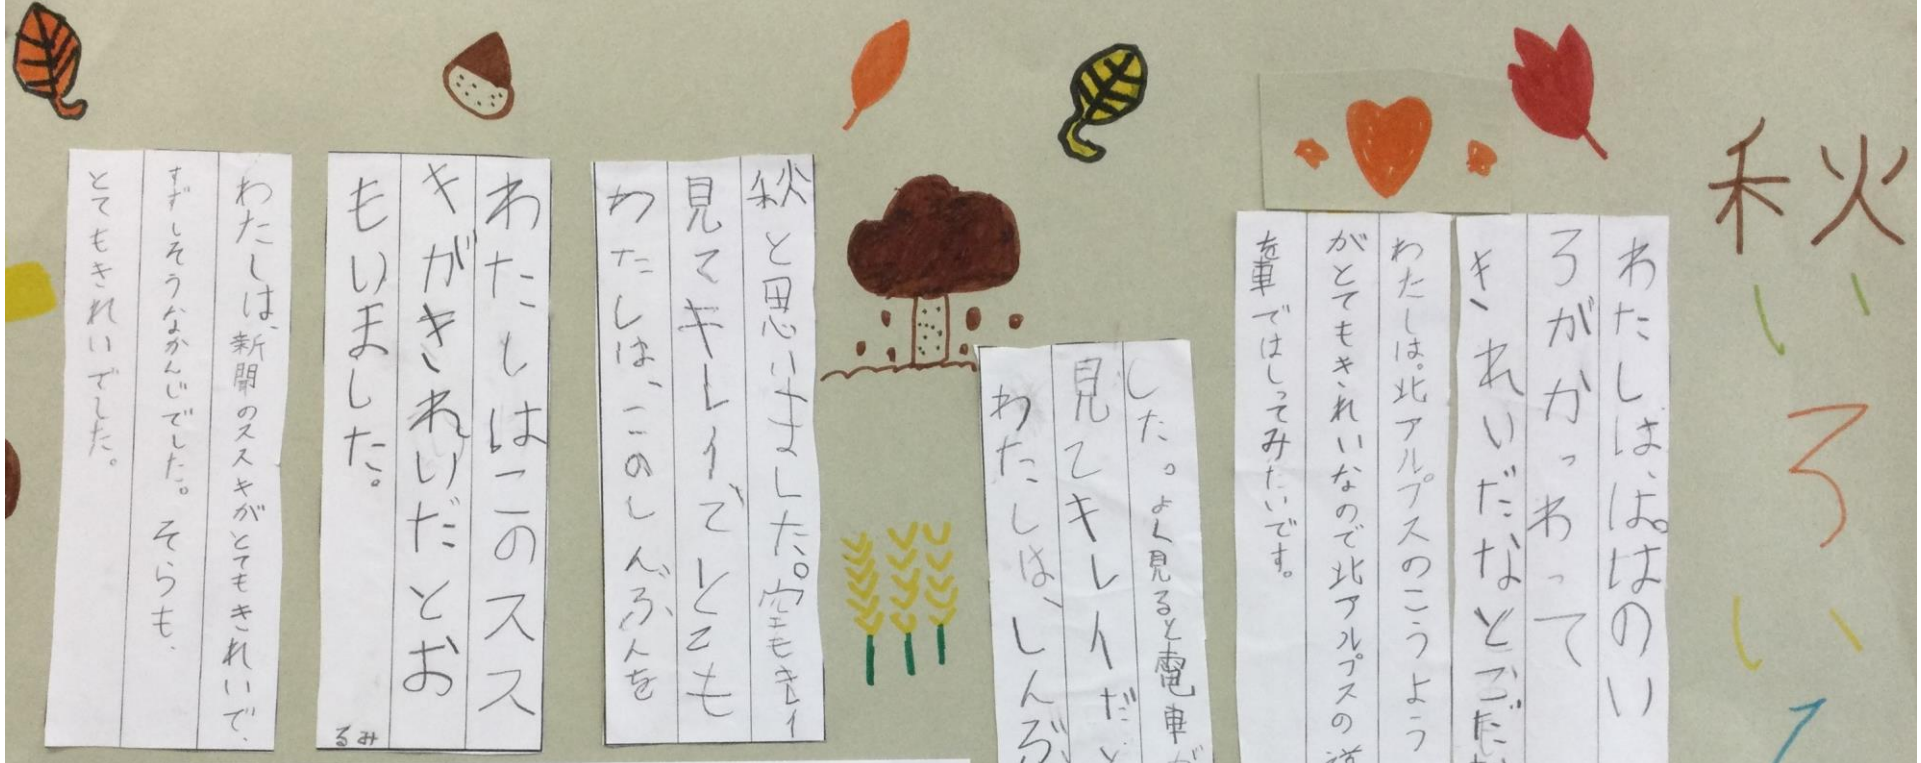 秋いろいろ
わたしは、はのい
ろがかっわって
きれいだなと
わたしは。北アルプスのこうよう
がとてもきれいなので北アルプスの道
を車ではしってみたいです。
した。よく見ると電車が
見てキレイだと
わたしは、しんぶ
秋と思いました。空もキレイ
見てキレイでとても
わたしは、このしんぶんを
わたしはこのスス
キがきれいだとお
もいました。
るみ
わたしは、新聞のススキがとてもきれいで、
すずしそうなかんじでした。そらも、
とてもきれいでした。